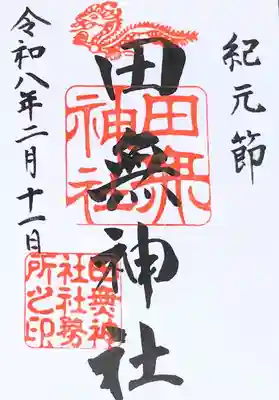 紀元節
田無神社
令和八年二月十一日
田無
神社
田無神
社社務
所之印